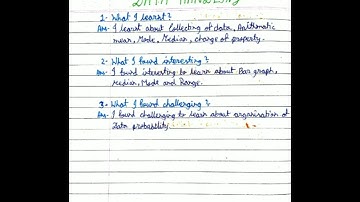 DATA HANDLING
1- What I learnt?
Ans- I learnt about Collecting of data, Arithmatic
mean, Mode, Median, change of property.
2- What I found interesting?
Ans- I found interesting to learn about Bar graph,
Median, Mode and Range.
3- What I found challenging?
Ans- I found challenging to learn about organisation of
Data probability.